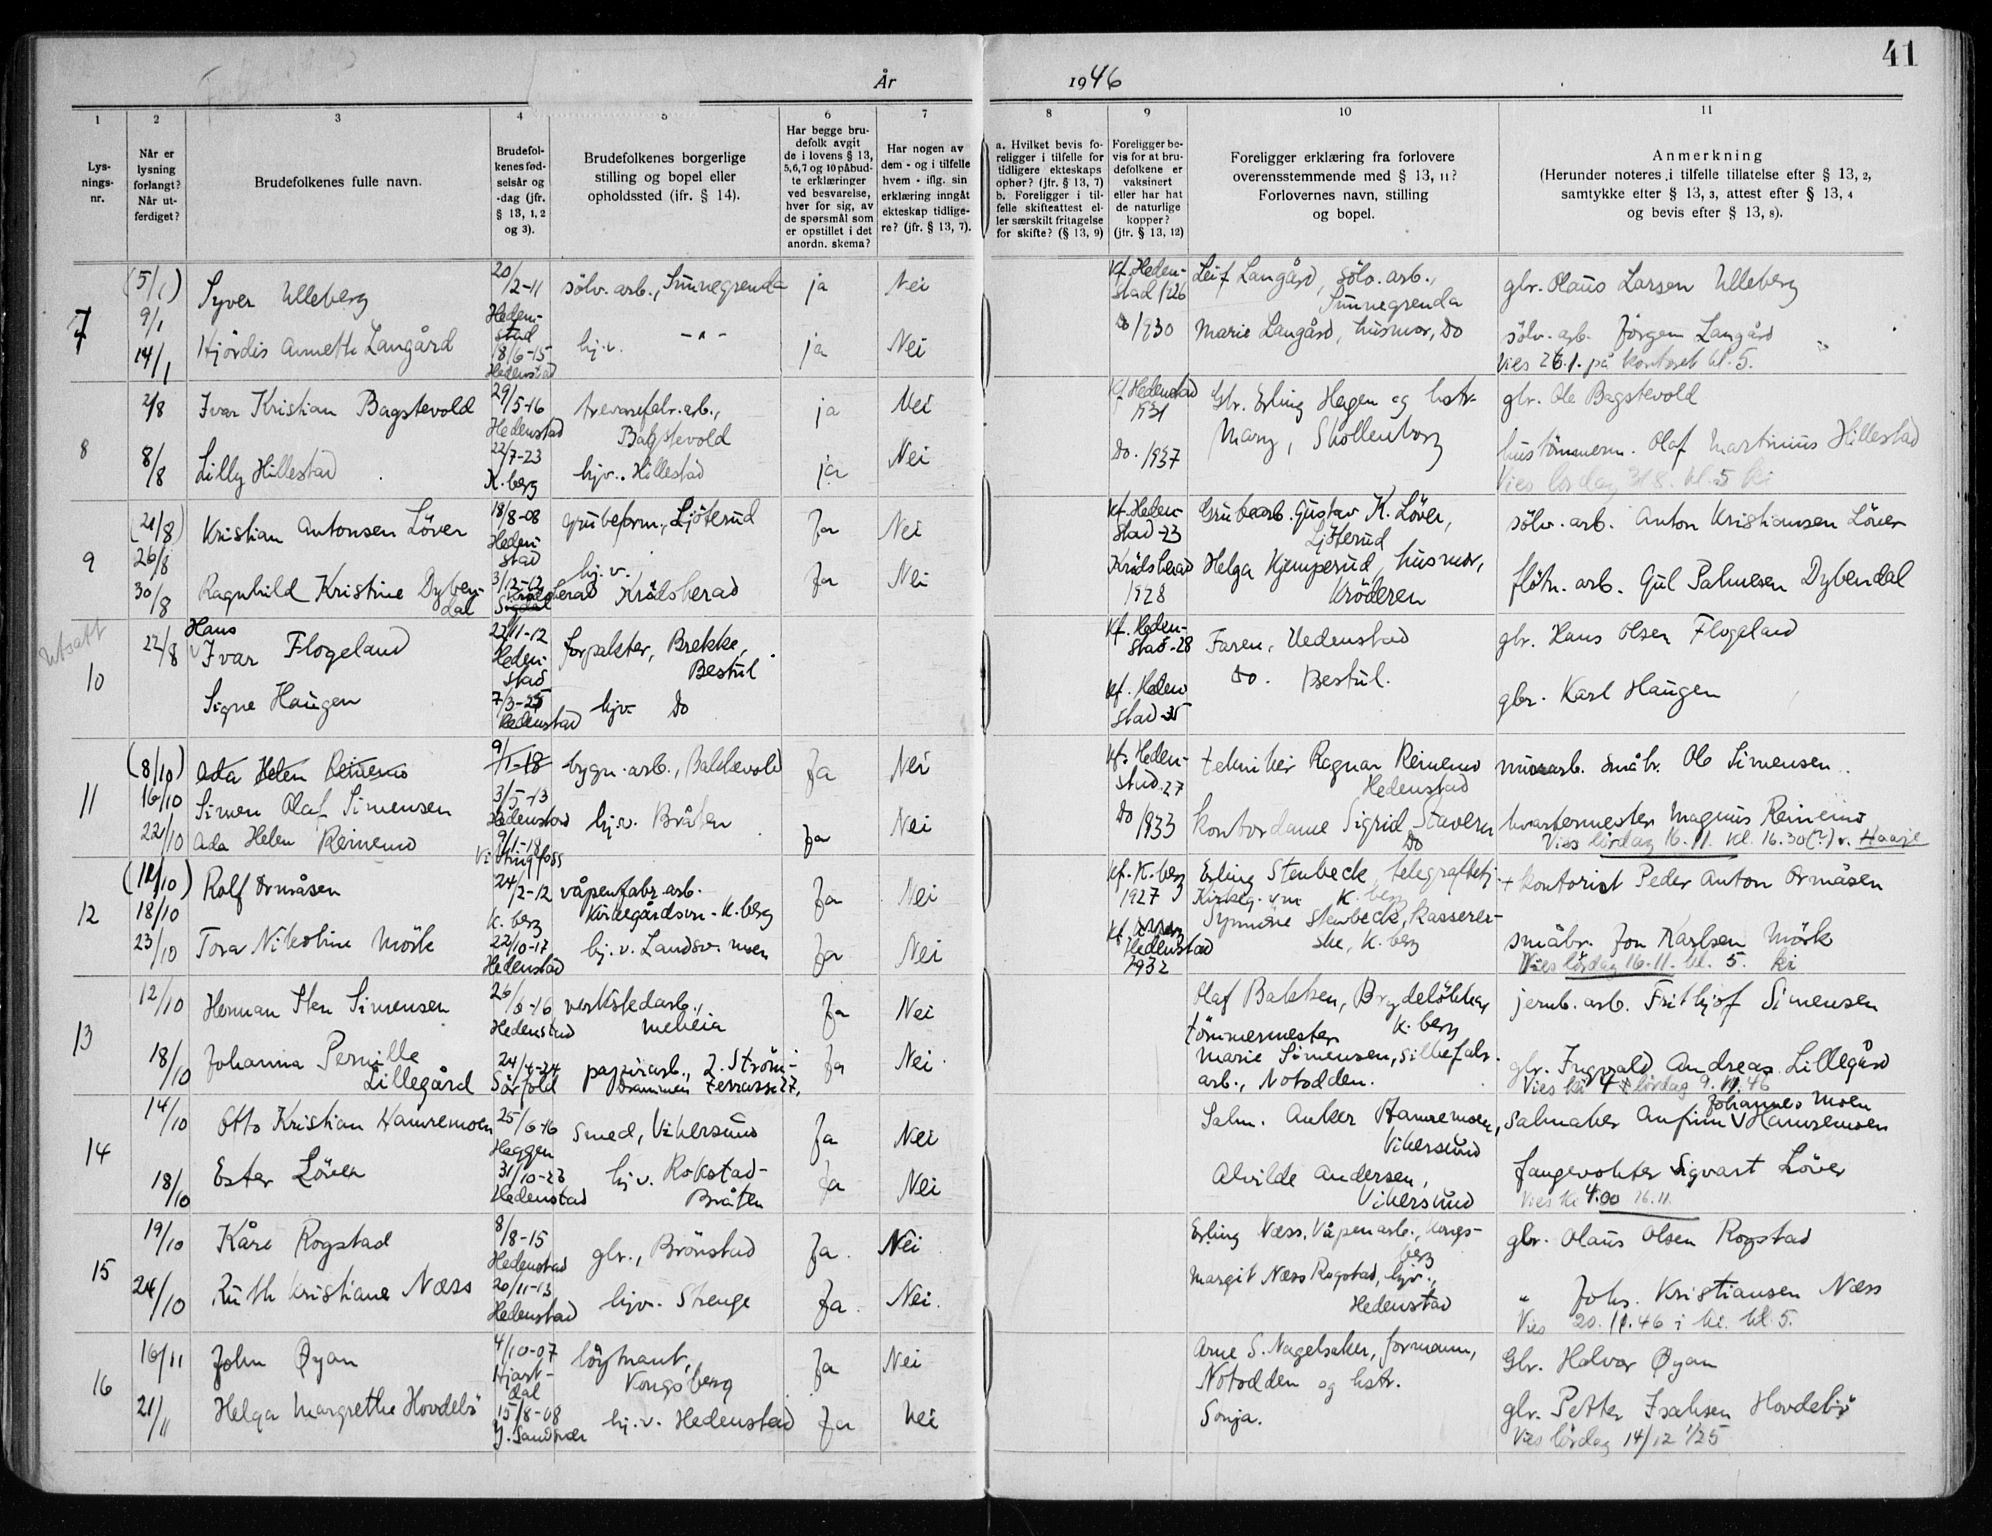 41
År 1946
1 2 3 4 5 6 7 8 9 10 11
Lysnings-nr.
Når er lysning forlangt? Når utferdiget?
Brudefolkenes fulle navn.
Brudefolkenes fødselsår og -dag (jfr. § 13, 1, 2 og 3).
Brudefolkenes borgerlige stilling og bopel eller opholdssted (ifr. § 14).
Har begge brudefolk avgit de i lovens § 13, 5,6,7 og 10 påbudte erklæringer ved besvarelse, hver for sig, av de spørsmål som er opstillet i det anordn. skema?
Har nogen av dem - og i tilfelle hvem - iflg. sin erklæring inngått ekteskap tidligere? (jfr. § 13, 7).
a. Hvilket bevis foreligger i tilfelle for tidligere ekteskaps ophør? (jfr. § 13, 7) b. Foreligger i tilfelle skifteattest eller særskilt fritagelse for skifte? (§ 13, 9)
Foreligger bevis for at brudefolkene er vaksinert eller har hat de naturlige kopper? (jfr. § 13, 12)
Foreligger erklæring fra forlovere overensstemmende med § 13, 11? Forlovernes navn, stilling og bopel.
Anmerkning (Herunder noteres, i tilfelle tillatelse efter § 13, 2, samtykke efter § 13, 3, attest efter § 13, 4 og bevis efter § 13, 8).
7 (5/1) 9/1 Syver Ulleberg 20/2-11 Hedenstad sölv. arb., Sunnegrenda ja Nei Kf. Hedenstad 1926 Leif Langård, sölv. arb., Sunnegrenda gbr. Olaus Larsen Ulleberg
14/1 Hjördis Anneth Langård 18/6-15 Hedenstad hj.v. -"- ja Nei Do 1930 Marie Langård, husmor, Do sölv. arb. Jörgen Langård
Vies 26.1. på kontoret kl. 5.
8 2/8 Ivar Kristian Bagstevold 29/5-16 Hedenstad trevarefabr. arb., Bagstevold ja Nei Kf Hedenstad 1931 Gbr. Erling Hagen og hstr. Mary, Skollenborg gbr. Ole Bagstevold
8/8 Lilly Hillestad 22/7-23 K.berg hjv. Hillestad ja Nei Do. 1937 hustömmerm. Olaf Martinius Hillestad
Vies lördag 31 8. kl. 5 ki
9 (21/8) 26/8 Kristian Antonsen Löver 18/8-08 Hedenstad grubeform., Ljöterud Ja Nei Kf. Hedenstad -23 Grubearb. Gustav K. Löver, Ljöterud sölv. arb. Anton Kristiansen Löver
30/8 Ragnhild Kristine Dybendal 3/12-12 Krödsherad Sigdal hj.v. Krödsherad Ja Nei Krödsherad 1928 Helga Kjemperud, husmor, Kröderen flötn. arb. Gul Palmesen Dybendal
utsatt
10 22/8 Hans Ivar Flogeland 22/11-12 Hedenstad forpakter, Brekke, Bestul Kf. Hedenstad -28 Faren, Hedenstad gbr. Hans Olsen Flogeland
Signe Haugen 7/3-25 Hedenstad hjv. Do Kf. Hedenstad -35 Do. Bestul. gbr. Karl Haugen
11 (8/10) Ada Helen Reinemo 9/1-18 bygn. arb., Bakkevold Ja Nei Kf. Hedenstad. 27 tekniker Ragnar Reinemo Hedenstad murarb. småbr. Ole Simensen
16/10 Simen Olaf Simensen 3/5-13 Hedenstad hj.v. Bråten Nei Do 1933 kontordame Sigrid Stavern Do kvartermester Magnus Reinemo
22/10 Ada Helen Reinemo 9/1-18 Vittingfoss Ja Vies lördag 16.11. kl. 16.30 (?) v. Haaje
12 (11/10) 18/10 Rolf Ormåsen 24/2-12 K. berg våpenfabr. arb. Kirkegårdsvn - K.berg Ja Nei Kf. K.berg 1927 Erling Stenbeck, telegrafbetj. Kirkeg. vn K. berg + kontorist Peder Anton Ormåsen
23/10 Tora Nikoline Mörk 22/10-17 Hedenstad hj. v. Landsv. moen Ja Nei Kf. Hedenstad 1932 Synnöve Stenbeck, kassererske, K. berg småbr. Jon Karlsen Mörk
Vies lördag 16.11. kl. 5. ki
13 12/10 Herman Sten Simensen 26/8-16 Hedenstad verkstedarb., Meheia Ja Nei Olaf Bakken, Brydelökka, K. berg tömmermester jernb. arb. Frithjof Simensen
18/10 Johanna Pernille Lillegård 24/4-24 Sörfold papirarb., 2. Ström-terrasse 27, Drammen Ja Nei Marie Simensen, silkefabr. arb., Notodden. gbr. Ingvald Andreas Lillegård
Vies ki 4 lördag 9.11.46
14 14/10 Otto Kristian Hamremoen 25/6-16 Heggen Smed, Vikersund Ja Nei Salm. Anker Hamremoen, Vikersund Salmaker Anfinn Johannes Moen Hamremoen
18/10 Ester Löver 31/10-23 Hedenstad hj. v. Rokstad-Bråten Ja Nei Alvilde Andersen, Vikersund fangevokter Sigvart Löver
Vies ki 4.00 16.11.
15 19/10 Kåre Rogstad 8/8-15 Hedenstad gbr., Brönstad Ja. Nei Erling Næss, Våpenarb., Kongsberg gbr. Olaus Olsen Rogstad
24/10 Ruth Kristiane Næss 20/11-13 Hedenstad hjv. Strenge Ja. Nei. Margit Næss Rogstad, hjv., Hedenstad " Johs. Kristiansen Næss
Vies 20.11.46 i ki. kl. 5.
16 16/11 John Øyan 4/10-07 Hjartdal löytnant, Kongsberg Ja Nei Arne S. Nagelsaker, formann, Notodden og hstr. Sonja. Gbr. Halvor Øyan
21/11 Helga Margrethe Hovdebö 15/8-08 Y. Sandsvær hj. v. Hedenstad Ja Nei gbr. Petter Isaksen Hovdebö
Vies lördag 14/12 1/25